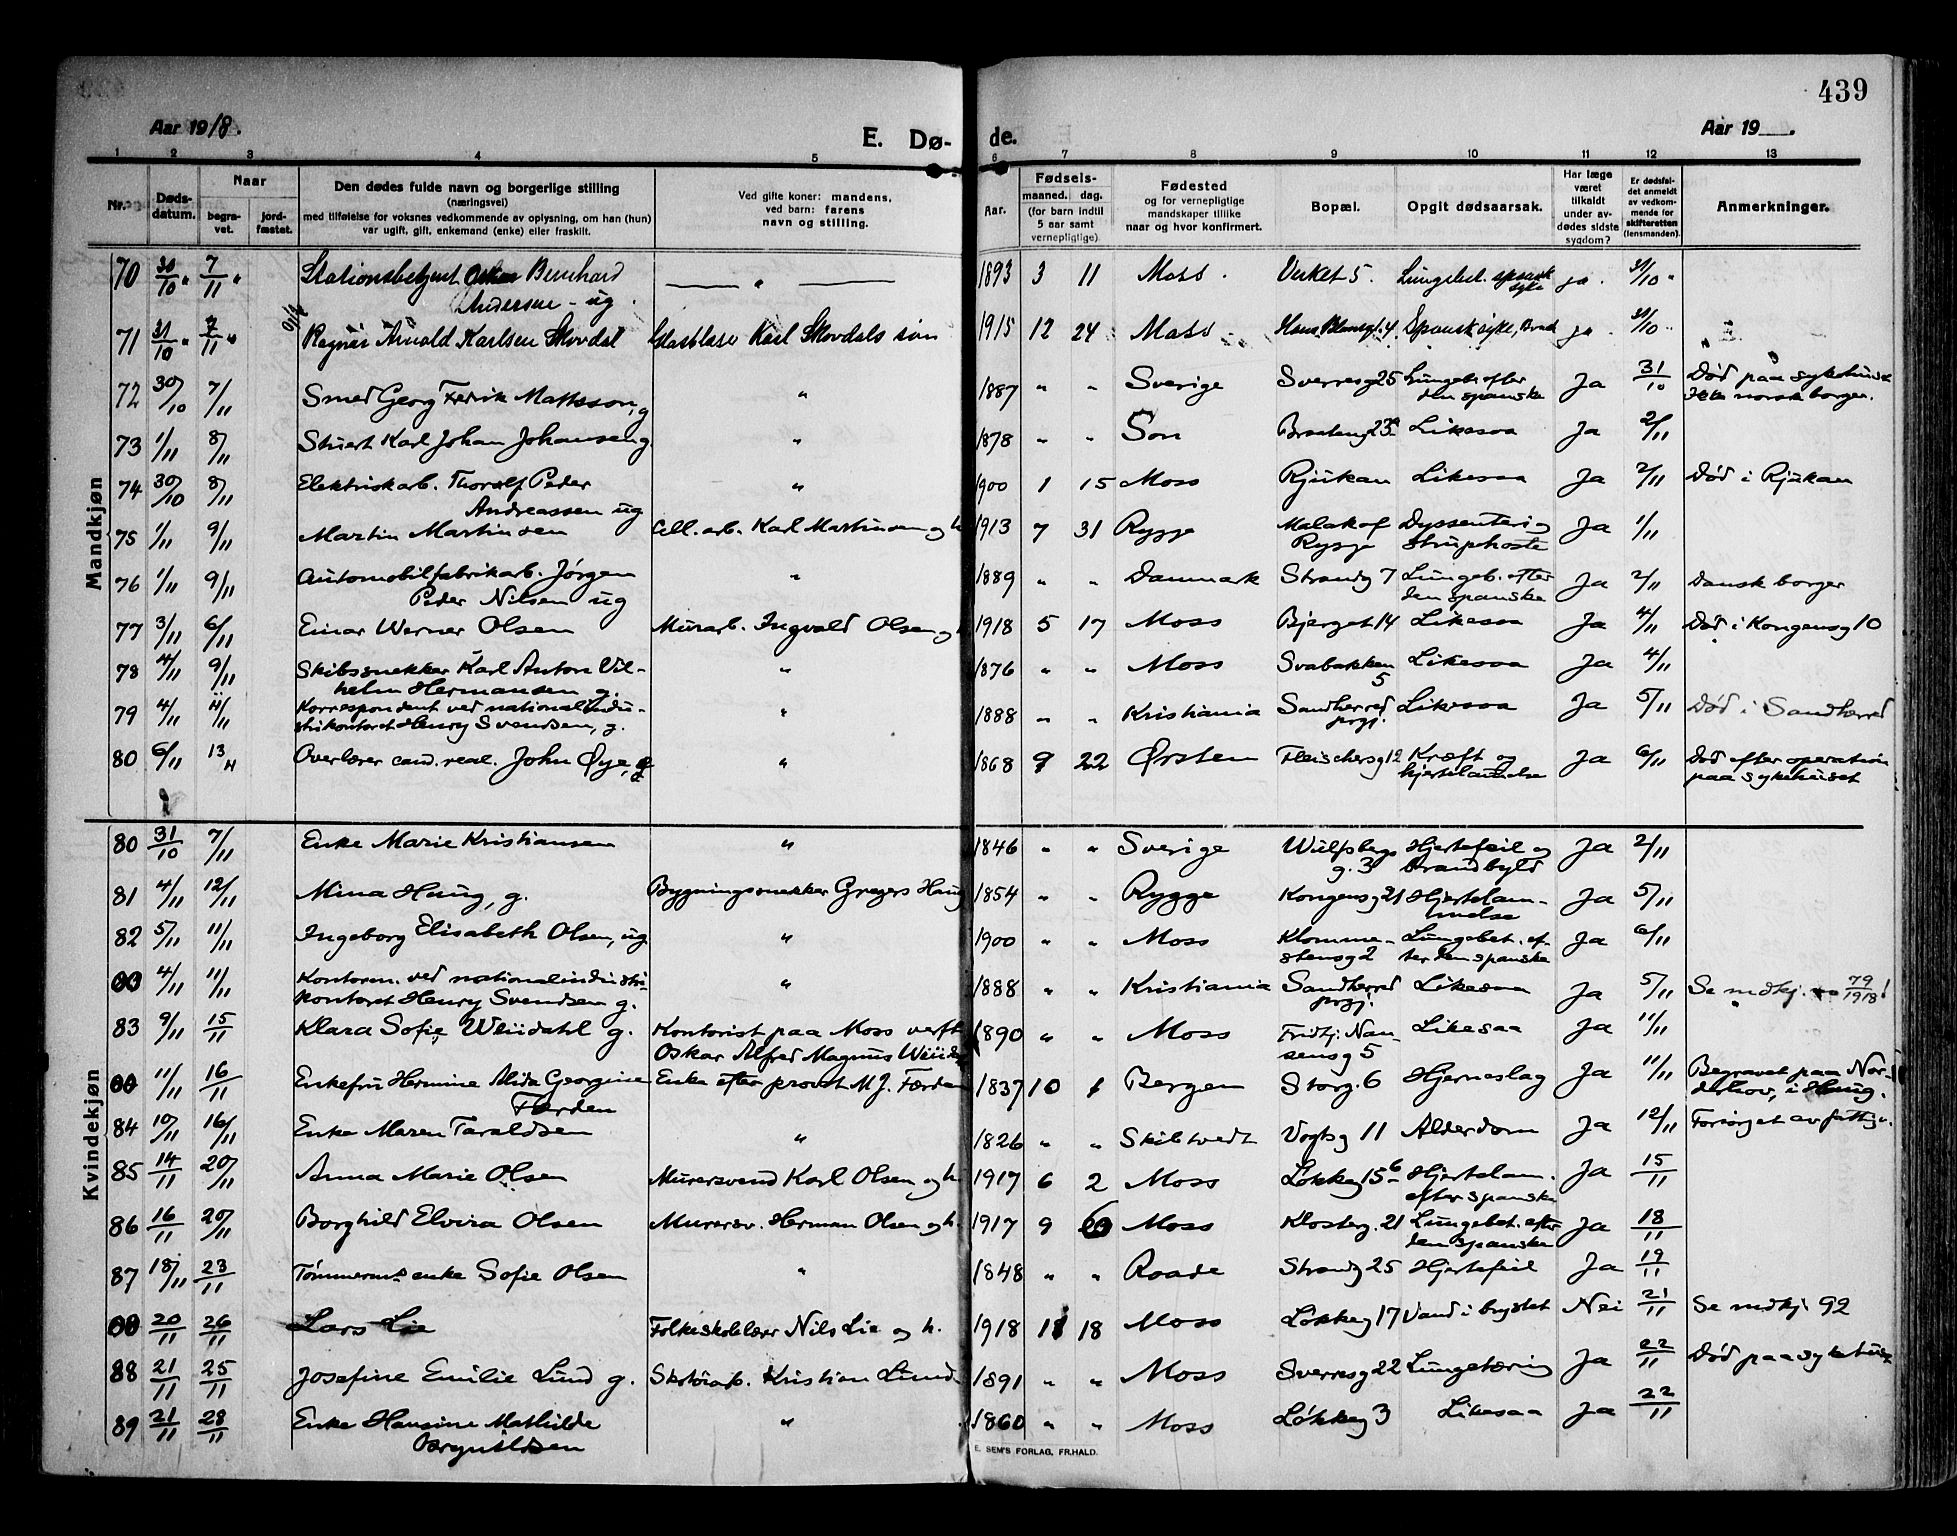 439
Aar 1918.
E. Dø- de.
Aar 19 .
1 2 3 4 5 6 7 8 9 10 11 12 13
Nr.
Døds-
datum.
Naar
begra-
vet.
jord-
fæstet.
Den dødes fulde navn og borgerlige stilling
(næringsvei)
med tilføielse for voksnes vedkommende av oplysning, om han (hun)
var ugift, gift, enkemand (enke) eller fraskilt.
Ved gifte koner: mandens,
ved barn: farens
navn og stilling.
Aar.
Fødsels-
maaned. dag.
(for barn indtil
5 aar samt
vernepligtige).
Fødested
og for vernepligtige
mandskaper tillike
naar og hvor konfirmert.
Bopæl.
Opgit dødsaarsak.
Har læge
været
tilkaldt
under av-
dødes sidste
sygdom?
Er dødsfal-
det anmeldt
av vedkom-
mende for
skifteretten
(lensmanden).
Anmerkninger.
Mandkjøn
70 30/10 7/11 Stationsbetjent Oskar Bernhard " 1893 3 11 Moss. Verket 5. Lungebet. spansk ja. 31/10
Andersen - ug. syke
71 31/10 7/11 Ragnar Arnold Karlsen Skovdal Glasblaser Karl Skovdals søn 1915 12 24 Moss. 4 Spansksyke, ja. 31/10 "
72 30/10 7/11 Smed Georg Fredrik Mattsson, g " 1887 " " Sverige Sverresg 25 Lungeb. efter Ja 31/10 Død paa sykehuset
den spanske Ikke norsk borger.
73 1/11 8/11 Stuert Karl Johan Johansen g " 1878 " " Son Braateng 23a Likesaa Ja 2/11
74 30/10 8/11 Elektriskarb. Thoralf Peder " 1900 1 15 Moss Rjukan Likesaa Ja 2/11 Død i Rjukan
Andreassen ug
75 1/11 9/11 Martin Martinsen Cell. arb. Karl Martinsen og h 1913 7 31 Rygge Malakof Dyssenteri og Ja 1/11
Rygge strupehoste
76 1/11 9/11 Automobilfabrikarb. Jørgen " 1889 " " Danmark Strandg 7 Lungeb. efter Ja 2/11 Dansk borger
Peder Nilsen ug den spanske
77 3/11 6/11 Einar Werner Olsen Murarb. Ingvald Olsen og h 1918 5 17 Moss Bjerget 14 Likesaa Ja 4/11 Død i Kongensg 10
78 4/11 9/11 Skibssnekker Karl Anton Vil- " 1876 " " Moss Svabakken Likesaa Ja 4/11
helm Hermansen g. 5
79 4/11 11/11 Korrespondent ved nationalindu- " 1888 " " Kristiania Sandherred Likesaa Ja 5/11 Død i Sandherred
strikontoret Henry Svendsen, g. prgj.
80 6/11 13/11 Overlærer cand. real. John Øye, g " 1868 9 22 Ørsten Fleischersg 12 Kræft og Ja 6/11 Død efter operation
hjertelammelse paa sykehuset
Kvindekjøn
80 31/10 7/11 Enke Marie Kristiansen " 1846 " " Sverige Wulfsbergs Hjertefeil og Ja 2/11
g. 3 brandbyld
81 4/11 12/11 Mina Haug, g. Bygningssnekker Gregers Haug 1854 " " Rygge Kongensg 21 Hjertelam- Ja 5/11
melse
82 5/11 11/11 Ingeborg Elisabeth Olsen, ug " 1900 " " Moss Klomme- Lungebet. ef- Ja 6/11
stensg 2 ter den spanske
4/11 11/11 Kontorm. ved nationalindustri- " 1888 " " Kristiania Sandherred Likesaa Ja 5/11 Se mdkj. 79/1918!
kontoret Henry Svendsen g. prgj.
83 9/11 15/11 Klara Sofie Weiidahl g. Kontorist paa Moss verft 1890 " " Moss Fridtj. Nan- Likesaa Ja 11/11
Oskar Alfred Magnus sensg 5
11/11 16/11 Enkefru Hermine Alida Georgine Enke efter provst M. J. Færden 1837 10 1 Bergen Storg. 6 Hjerneslag Ja 11/11 Begravet paa Nor-
Færden derhov, i Haug.
84 10/11 16/11 Enke Maren Taraldsen " 1826 " " Skibtvedt Vogtsg 11 Alderdom Ja 12/11 Forsørget av fattigv.
85 14/11 20/11 Anna Marie Olsen Murersvend Karl Olsen og h 1917 6 2 Moss Løkkeg 15b Hjertelam. Ja 15/11
efter spanske
86 16/11 20/11 Borghild Elvira Olsen Murersv. Herman Olsen og h. 1917 9 6 Moss Klosterg. 21 Lungebet. efter Ja 18/11
den spanske
87 18/11 23/11 Tømmerms enke Sofie Olsen " 1848 " " Raade Strandg 25 Hjertefeil Ja 19/11
20/11 26/11 Lars Lie Folkeskolelærer Nils Lie og h. 1918 11 18 Moss Løkkeg 17 Vand i brystet Nei 21/11 Se mdkj. 92
88 21/11 25/11 Josefine Emilie Lund g. Skotøiarb. Kristian Lund 1891 " " Moss Sverresg 22 Lungetæring Ja 22/11 Død paa sykehus
89 21/11 28/11 Enke Hansine Mathilde " 1860 " " Moss Løkkeg 3 Likesaa Ja 22/11
Brynildsen
E. SEM'S FORLAG, FR.HALD.